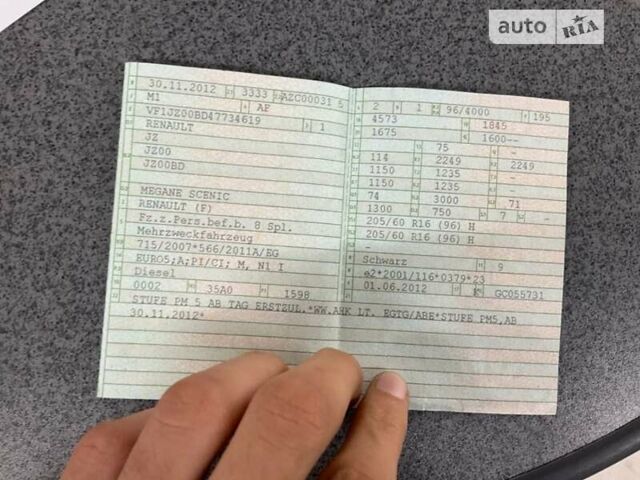 auto RIA
30.11.2012 3333 AZC00031 5
M1 AF
VF1JZ00BD47734619 1
RENAULT
JZ
JZ00
JZ00BD
MEGANE SCENIC
RENAULT (F)
Fz.z.Pers.bef.b. 8 Spl.
Mehrzweckfahrzeug
715/2007*566/2011A/EG
EURO5;A;PI/CI; M, N1 I
Diesel
0002 35A0 1598
2 1 96/4000 195
4573 1845
1675 1600--
75 -
114 2249 2249
1150 1235 -
1150 1235 -
74 3000 71
1300 750 7 -
205/60 R16 (96) H
205/60 R16 (96) H
-
Schwarz 9
e2*2001/116*0379*23
01.06.2012 K GC055731
STUFE PM 5 AB TAG ERSTZUL.*WW.AHK LT. EGTG/ABE*STUFE PM5,AB
30.11.2012*